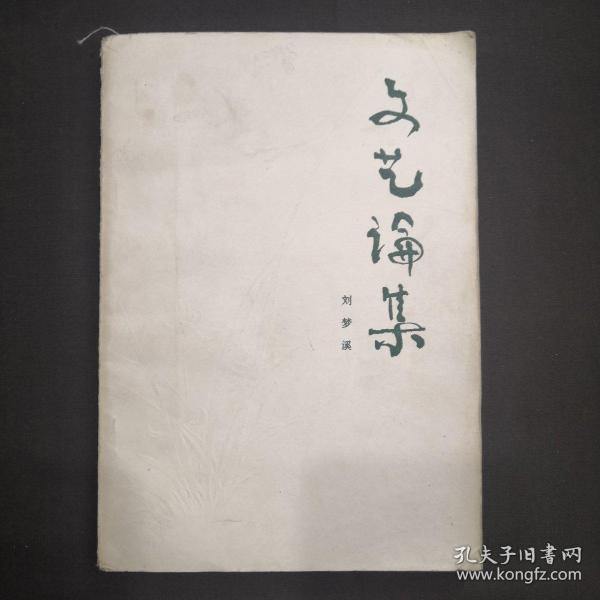 文艺论集
刘梦溪
孔夫子旧書网
www.kongfz.com